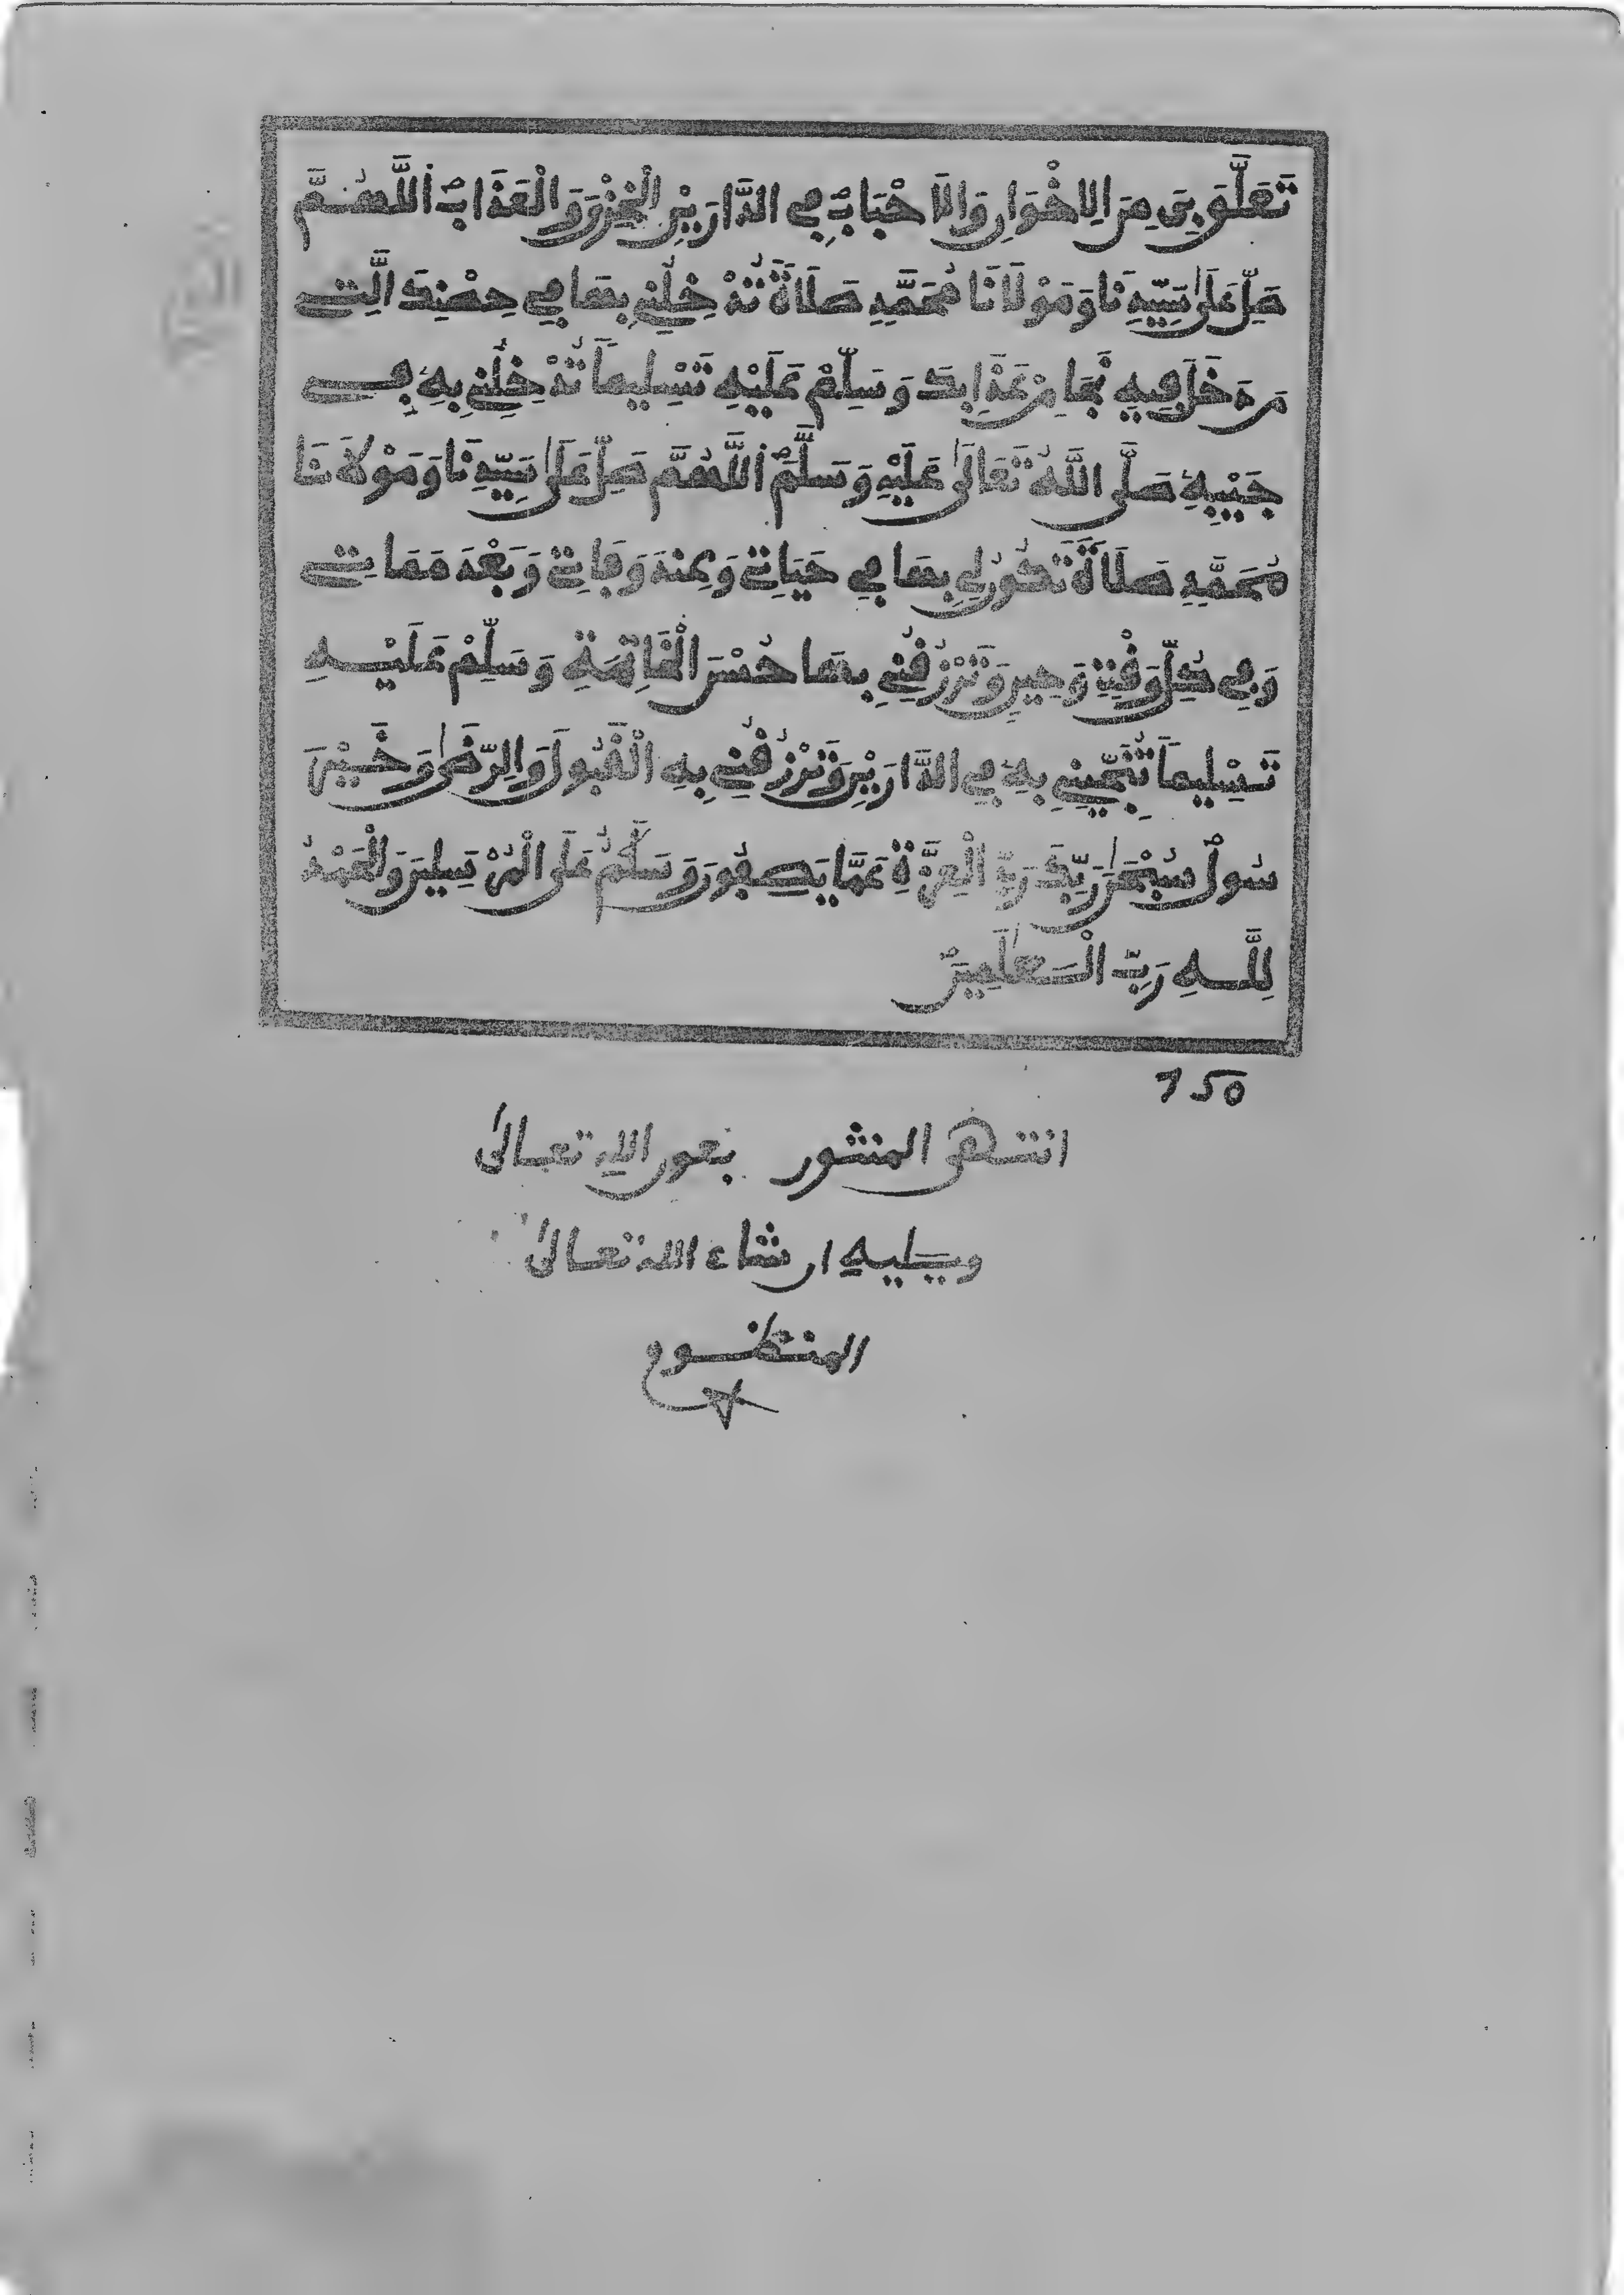 تَعَلَّقَ بِيَ مِنَ الِاخْوَانِ وَالَاحْبَابِ فِي الدَّارَيْنِ الْخِزْيَ وَالْعَذَابَ اَللَّهُمَّ
صَلِّ عَلَىٰ سَيِّدِنَا وَمَوْلَانَا مُحَمَّدٍ صَلَاةً تُدْخِلُنِي بِهَا فِي حِصْنِكَ الَّتِي
مَن دَخَلَ فِيهِ نَجَا مِنْ عَذَابِكَ وَسَلِّمْ عَلَيْهِ تَسْلِيماً تُدْخِلُنِي بِهِ فِي
حَبِيبِهِ صَلَّى اللَّهُ تَعَالَىٰ عَلَيْهِ وَسَلَّمَ اَللَّهُمَّ صَلِّ عَلَىٰ سَيِّدِنَا وَمَوْلَانَا
مُحَمَّدٍ صَلَاةً تَكُونُ لِي بِهَا فِي حَيَاتِي وَعِنْدَ وَفَاتِي وَبَعْدَ مَمَاتِي
وَفِي كُلِّ وَقْتٍ وَحِينٍ وَتَرْزُقُنِي بِهَا حُسْنَ الْخَاتِمَةِ وَسَلِّمْ عَلَيْهِ
تَسْلِيماً تُنَجِّينِي بِهِ فِي الدَّارَيْنِ وَتَرْزُقُنِي بِهِ الْقَبُولَ وَالرِّضَىٰ وَخَيْرَ
سُولْ سُبْحَٰنَ رَبِّكَ رَبِّ الْعِزَّةِ عَمَّا يَصِفُونَ وَسَلَٰمٌ عَلَى الْمُرْسَلِينَ وَالْحَمْدُ
لِلَّهِ رَبِّ الْعَٰلَمِينَ
150
انتهى المنثور بعون الله تعالىٰ
ويليه ان شاء الله تعالىٰ
المنظوم